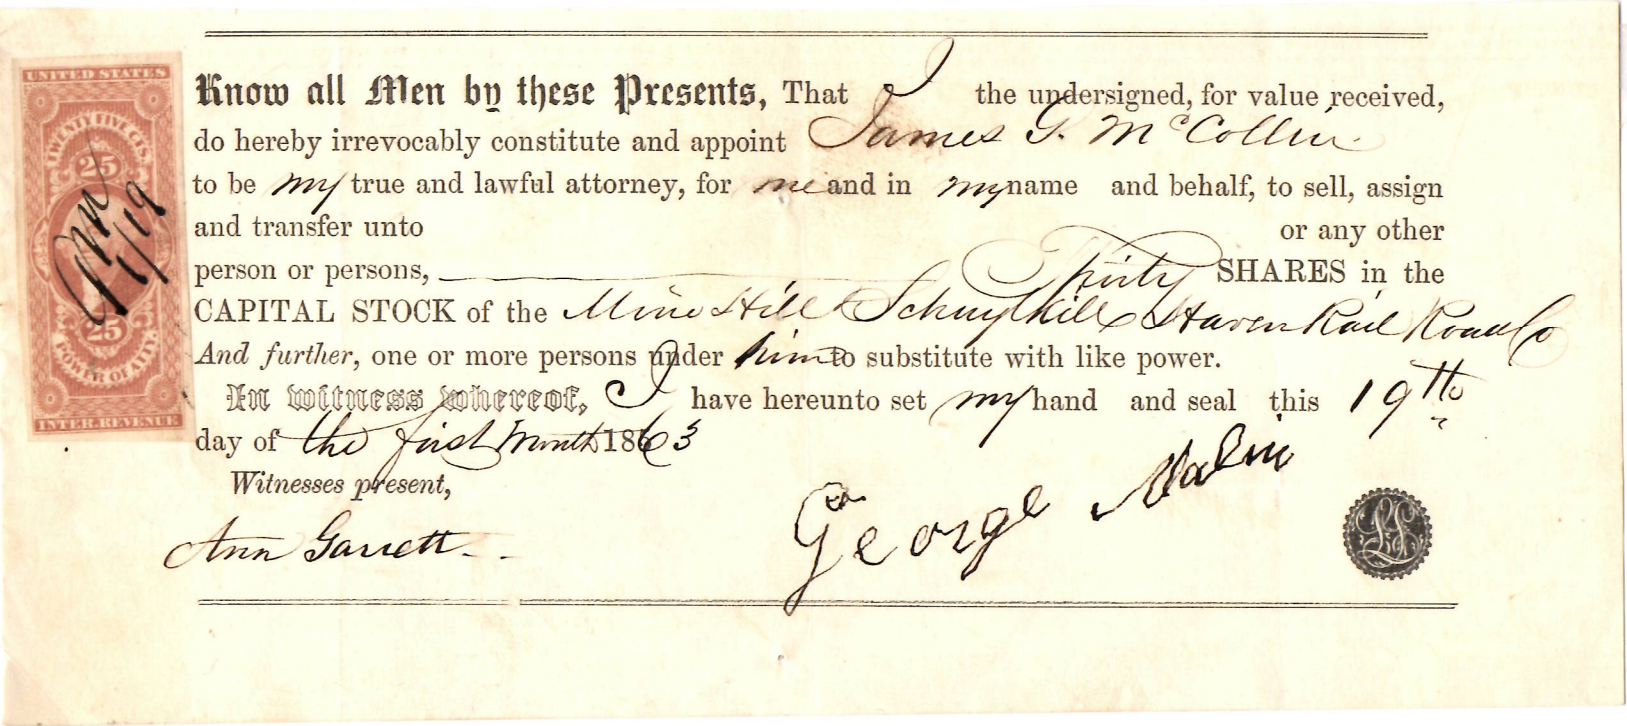 UNITED STATES
TWENTY FIVE CTS.
25
GM
1/19
25
POWER OF ATT'Y.
INTER. REVENUE
Know all Men by these Presents, That I the undersigned, for value received,
do hereby irrevocably constitute and appoint James G. McCollin
to be my true and lawful attorney, for me and in my name and behalf, to sell, assign
and transfer unto or any other
person or persons, Thirty SHARES in the
CAPITAL STOCK of the Mine Hill & Schuylkill Haven Rail Road Co
And further, one or more persons under him to substitute with like power.
In witness whereof, I have hereunto set my hand and seal this 19th
day of the first Month 1863
Witnesses present,
Ann Garrett
George Malin
LS